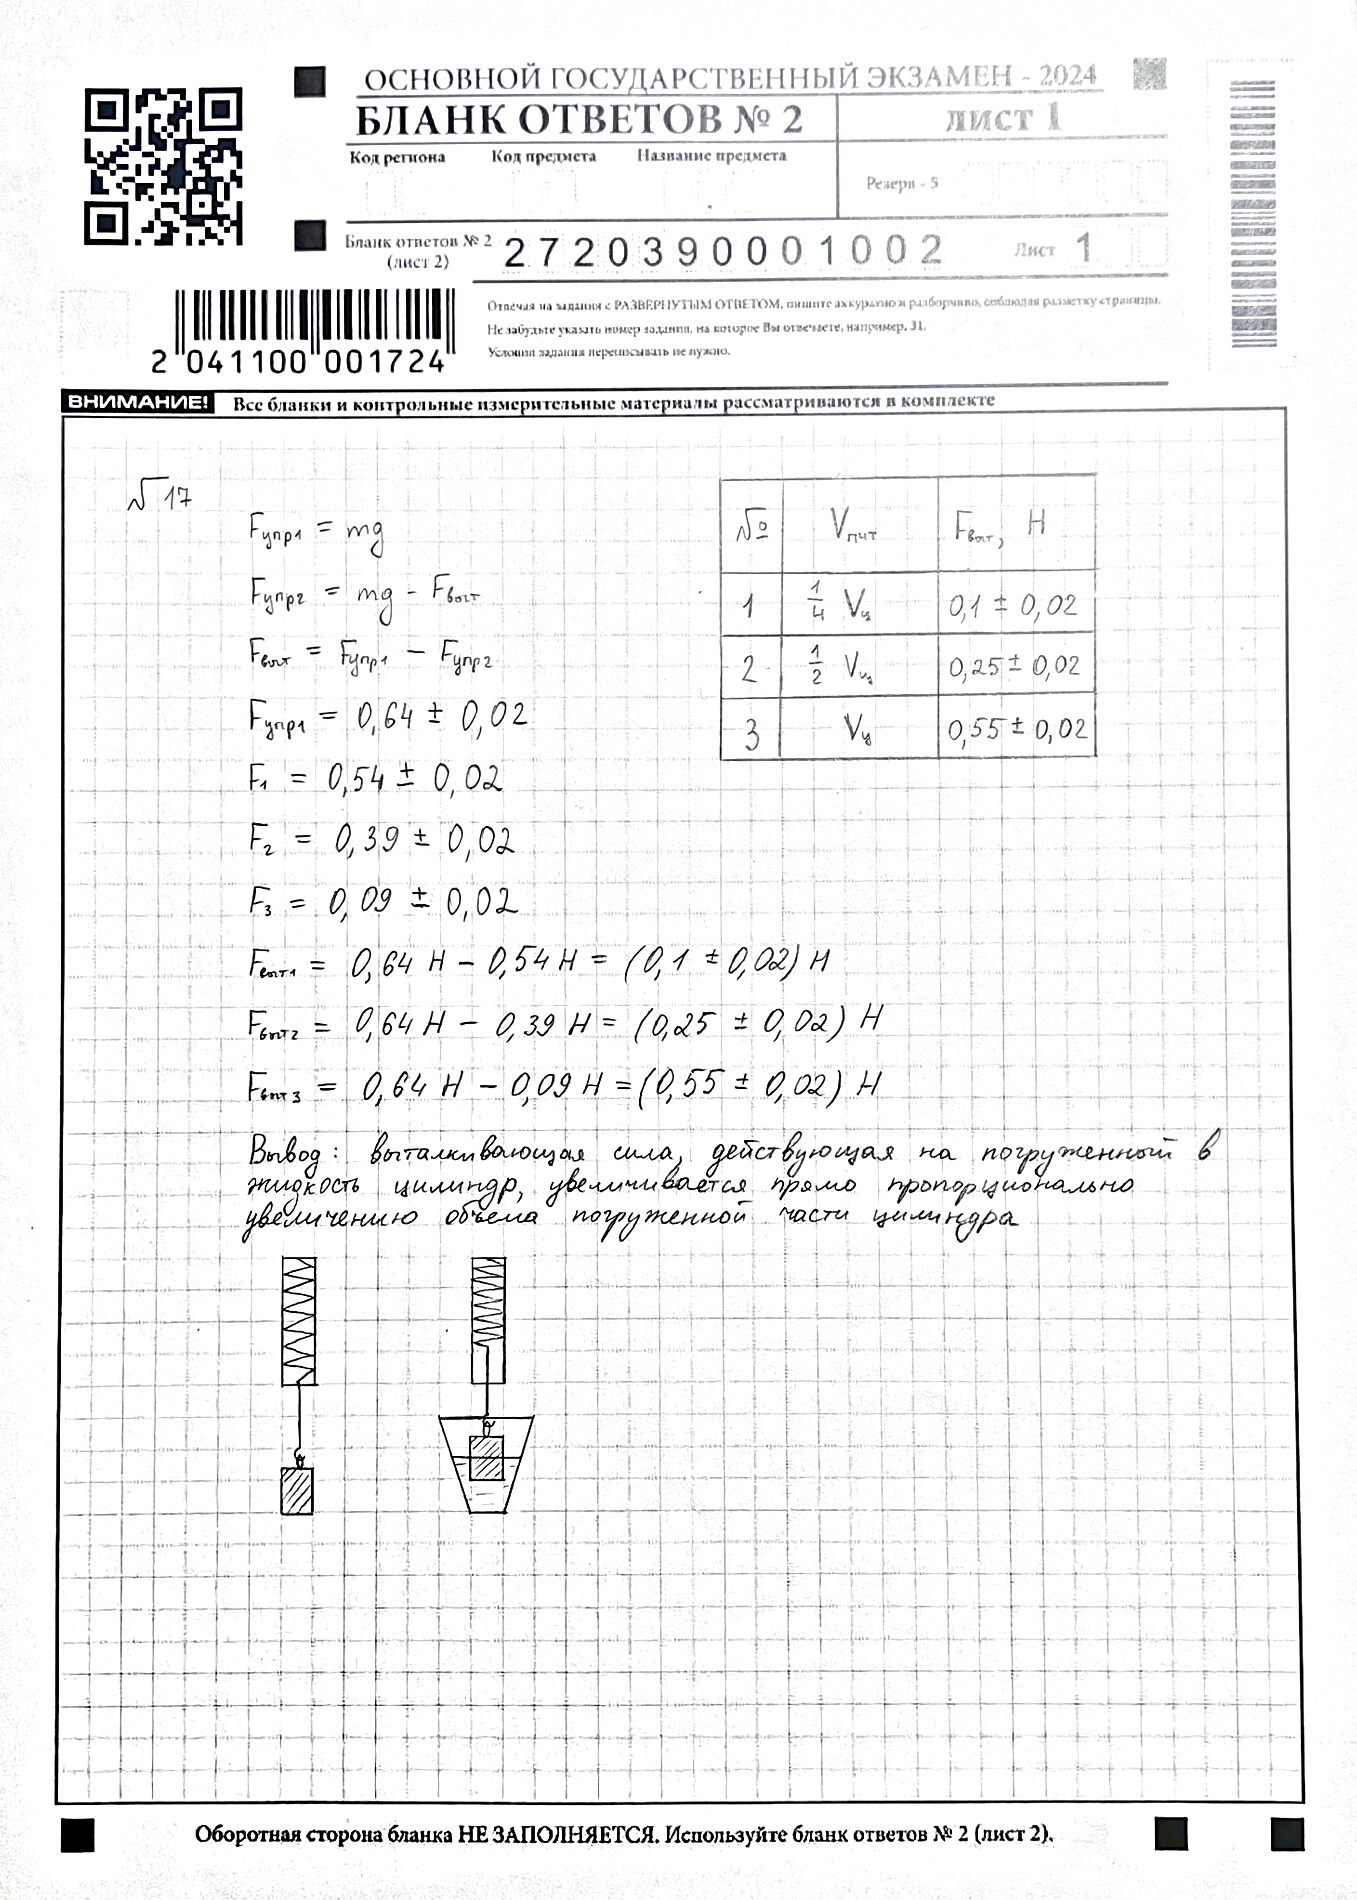 ОСНОВНОЙ ГОСУДАРСТВЕННЫЙ ЭКЗАМЕН - 2024
БЛАНК ОТВЕТОВ № 2
ЛИСТ 1
Код региона
Код предмета
Название предмета
Резерв - 5
Бланк ответов № 2
(лист 2)
2720390001002
Лист 1
2 041100 001724
Отвечая на задания с РАЗВЕРНУТЫМ ОТВЕТОМ, пишите аккуратно и разборчиво, соблюдая разметку страницы.
Не забудьте указать номер задания, на которое Вы отвечаете, например, 31.
Условия задания переписывать не нужно.
ВНИМАНИЕ! Все бланки и контрольные измерительные материалы рассматриваются в комплекте
№17
Fупр1 = mg
Fупр2 = mg - Fвыт
Fвыт = Fупр1 - Fупр2
Fупр1 = 0,64 ± 0,02
F1 = 0,54 ± 0,02
F2 = 0,39 ± 0,02
F3 = 0,09 ± 0,02
Fвыт1 = 0,64 Н - 0,54 Н = (0,1 ± 0,02) Н
Fвыт2 = 0,64 Н - 0,39 Н = (0,25 ± 0,02) Н
Fвыт3 = 0,64 Н - 0,09 Н = (0,55 ± 0,02) Н
№ Vпчт Fвыт, Н
1 1/4 Vц 0,1 ± 0,02
2 1/2 Vц 0,25 ± 0,02
3 Vц 0,55 ± 0,02
Вывод: выталкивающая сила, действующая на погруженный в
жидкость цилиндр, увеличивается прямо пропорционально
увеличению объема погруженной части цилиндра
Оборотная сторона бланка НЕ ЗАПОЛНЯЕТСЯ. Используйте бланк ответов № 2 (лист 2).